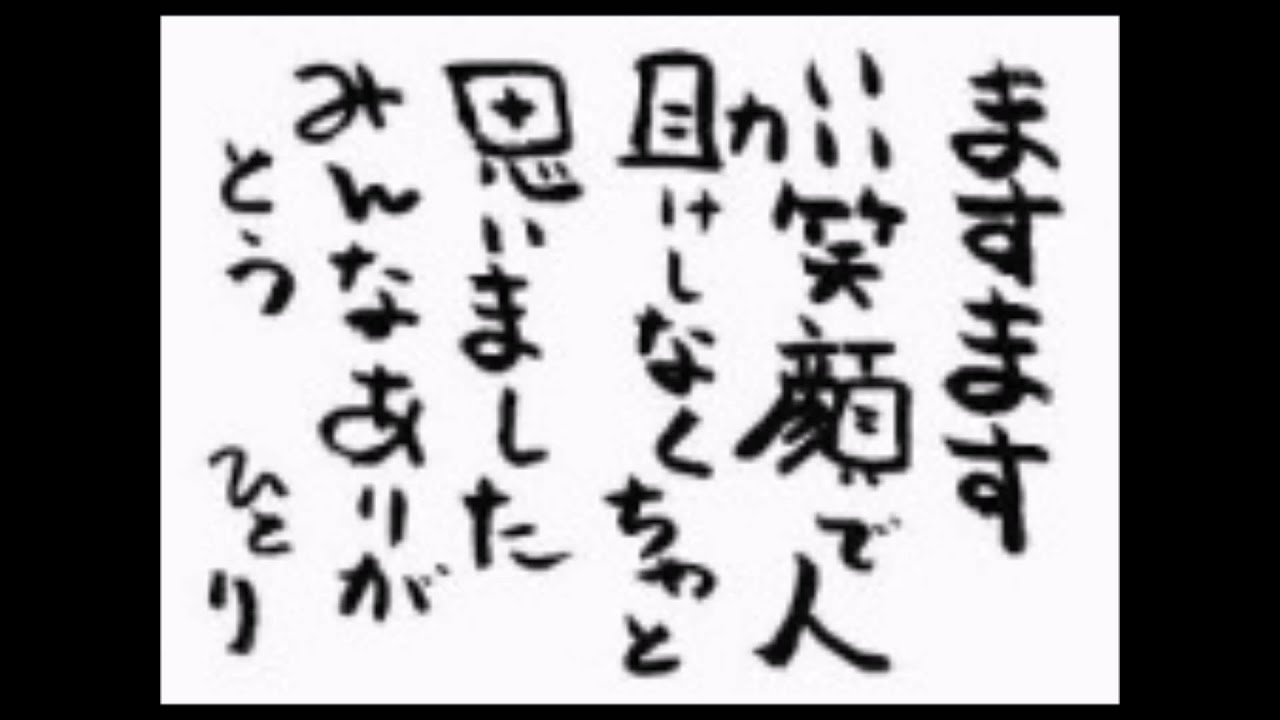 ますます
いい笑顔で人
助けしなくちゃと
思いました
みんなありが
とう
ひとり